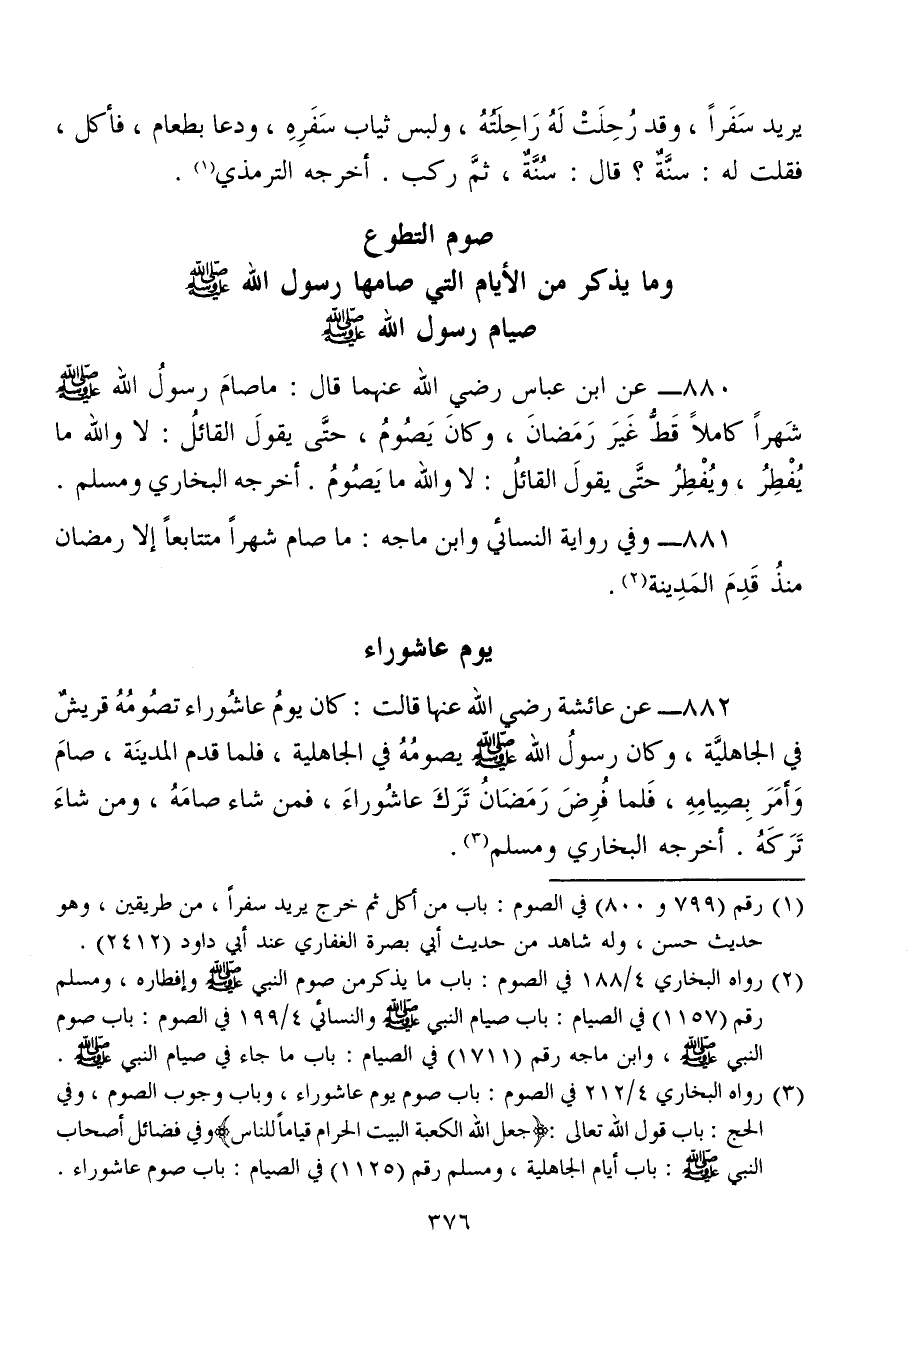 يريد سَفَراً ، وقد رُحِلَتْ لَهُ رَاحِلَتُهُ ، ولبس ثياب سَفَرِهِ ، ودعا بطعام ، فأكل ،
فقلت له : سنَّةٌ ؟ قال : سُنَّةٌ ، ثمَّ ركب . أخرجه الترمذي(١) .
صوم التطوع
وما يذكر من الأيام التي صامها رسول الله ﷺ
صيام رسول الله ﷺ
٨٨٠ــ عن ابن عباس رضي الله عنهما قال : ماصامَ رسولُ الله ﷺ
شَهراً كاملاً قَطُّ غَيرَ رَمَضانَ ، وكانَ يَصُومُ ، حتَّى يقولَ القائلُ : لا والله ما
يُفْطِرُ ، ويُفْطِرُ حتَّى يقولَ القائلُ : لا والله ما يَصُومُ . أخرجه البخاري ومسلم .
٨٨١ــ وفي رواية النسائي وابن ماجه : ما صام شهراً متتابعاً إلا رمضان
منذُ قَدِمَ المَدِينة(٢) .
يوم عاشوراء
٨٨٢ــ عن عائشة رضي الله عنها قالت : كان يومُ عاشُوراء تصُومُهُ قريشٌ
في الجاهليَّة ، وكان رسولُ الله ﷺ يصومُهُ في الجاهلية ، فلما قدم المدينَة ، صامَ
وَأَمَرَ بِصِيامِهِ ، فَلما فُرِضَ رَمَضَانُ تَرَكَ عاشُوراءَ ، فمن شاء صامَهُ ، ومن شاءَ
تَرَكَهُ . أخرجه البخاري ومسلم(٣) .
(١) رقم (٧٩٩ و ٨٠٠) في الصوم : باب من أكل ثم خرج يريد سفراً ، من طريقين ، وهو
حديث حسن ، وله شاهد من حديث أبي بصرة الغفاري عند أبي داود (٢٤١٢) .
(٢) رواه البخاري ١٨٨/٤ في الصوم : باب ما يذكر من صوم النبي ﷺ وإفطاره ، ومسلم
رقم (١١٥٧) في الصيام : باب صيام النبي ﷺ والنسائي ١٩٩/٤ في الصوم : باب صوم
النبي ﷺ ، وابن ماجه رقم (١٧١١) في الصيام : باب ما جاء في صيام النبي ﷺ .
(٣) رواه البخاري ٢١٢/٤ في الصوم : باب صوم يوم عاشوراء ، وباب وجوب الصوم ، وفي
الحج : باب قول الله تعالى :﴿جعل الله الكعبة البيت الحرام قياماً للناس﴾وفي فضائل أصحاب
النبي ﷺ : باب أيام الجاهلية ، ومسلم رقم (١١٢٥) في الصيام : باب صوم عاشوراء .
٣٧٦